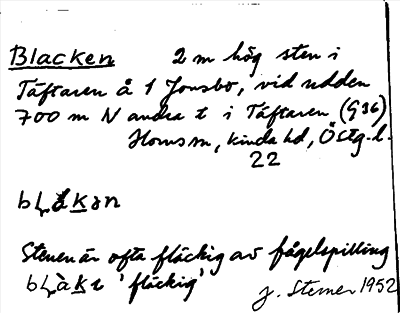 Blacken 2 m hög sten i
Täftaren å 1 Jonsbo, vid udden
700 m N andra t i Täftaren (G36)
Horns m, Kinda hd, Östg. l.
22
Stenen är ofta fläckig av fågelspilling
'fläckig'
J. Sterner 1952